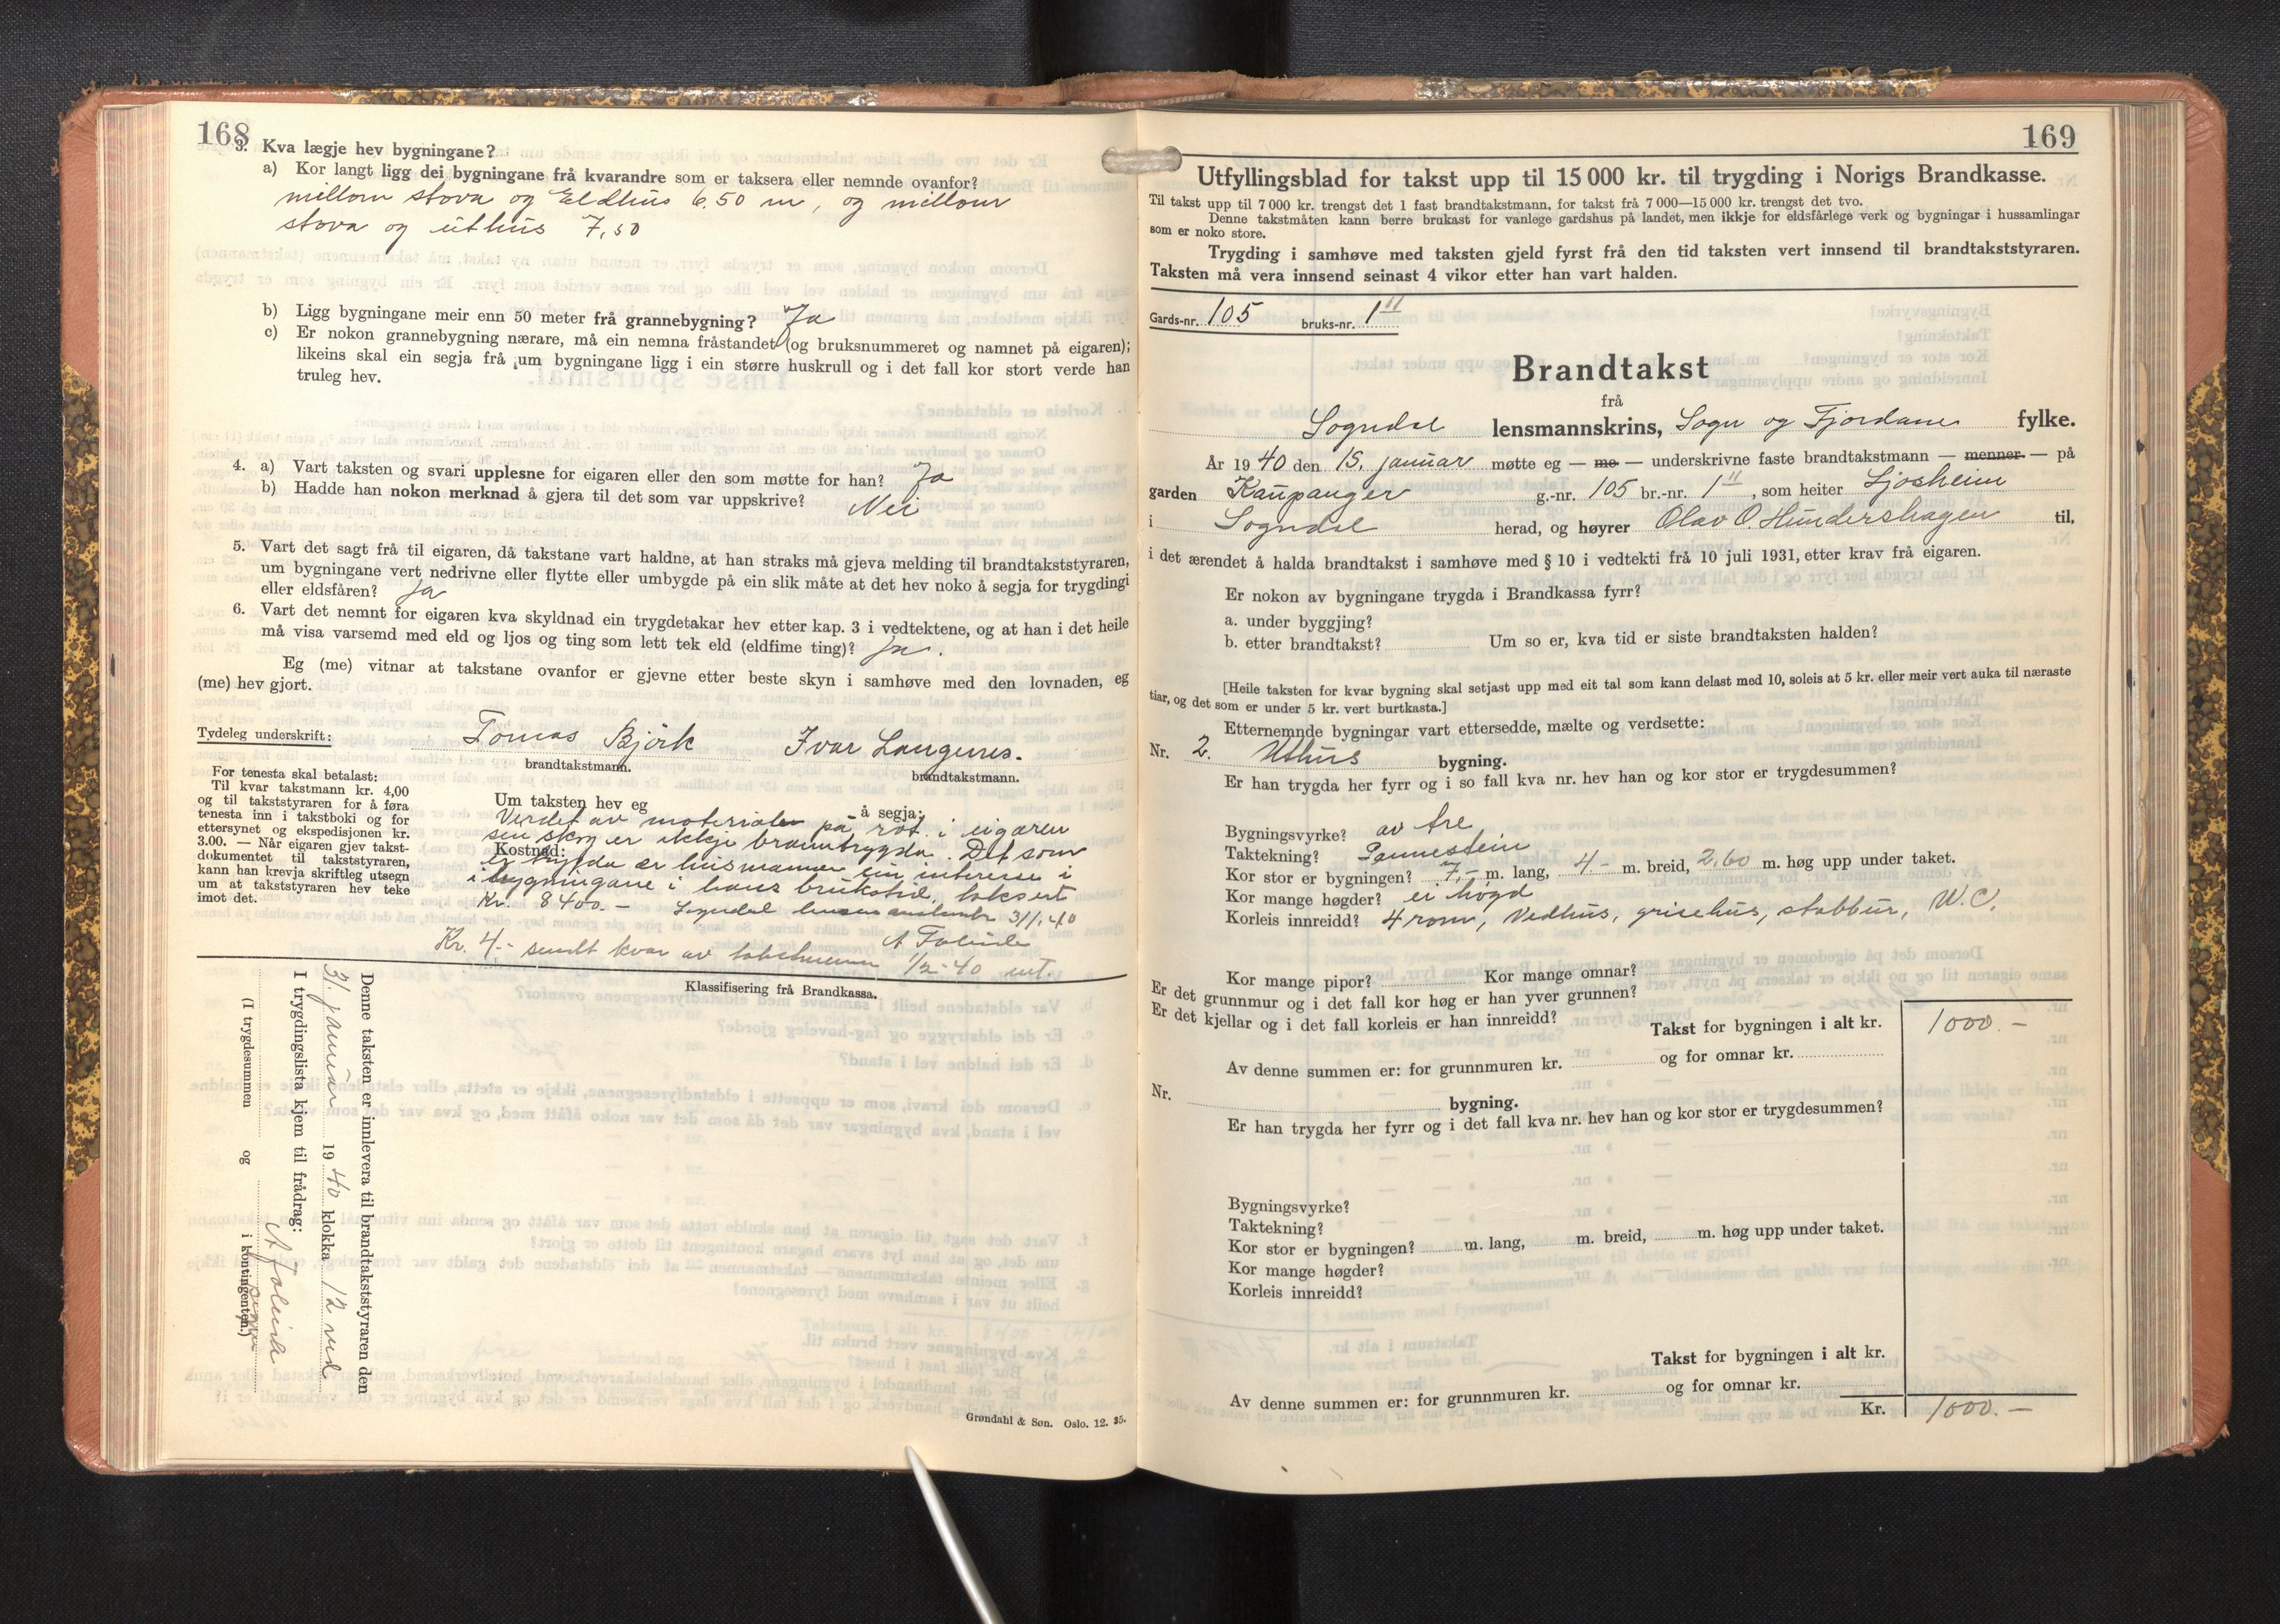 168
3. Kva lægje hev bygningane?
a) Kor langt ligg dei bygningane frå kvarandre som er taksera eller nemnde ovanfor?
millom stova og Eldhus 6.50 m, og millom
stova og uthus 7,50
b) Ligg bygningane meir enn 50 meter frå grannebygning? Ja
c) Er nokon grannebygning nærare, må ein nemna fråstandet (og bruksnummeret og namnet på eigaren);
likeins skal ein segja frå um bygningane ligg i ein større huskrull og i det fall kor stort verde han
truleg hev.
4. a) Vart taksten og svari upplesne for eigaren eller den som møtte for han? Ja
b) Hadde han nokon merknad å gjera til det som var uppskrive? Nei
5. Vart det sagt frå til eigaren, då takstane vart haldne, at han straks må gjeva melding til brandtakststyraren,
um bygningane vert nedrivne eller flytte eller umbygde på ein slik måte at det hev noko å segja for trygdingi
eller eldsfåren? Ja
6. Vart det nemnt for eigaren kva skyldnad ein trygdetakar hev etter kap. 3 i vedtektene, og at han i det heile
må visa varsemd med eld og ljos og ting som lett tek eld (eldfime ting)? Ja.
Eg (me) vitnar at takstane ovanfor er gjevne etter beste skyn i samhøve med den lovnaden, eg
(me) hev gjort.
Tydeleg underskrift: Tomas Björk Ivar Langenes.
brandtakstmann. brandtakstmann.
For tenesta skal betalast:
Til kvar takstmann kr. 4,00
og til takststyraren for å føra
tenesta inn i takstboki og for
ettersynet og ekspedisjonen kr.
3.00. — Når eigaren gjev takst-
dokumentet til takststyraren,
kann han krevja skriftleg utsegn
um at takststyraren hev teke
imot det.
Um taksten hev eg å segja:
Verdet av materialer på rot i eigaren
sin skog er ikkje branntrygda. Det som
Kostnad:
er trygda er husmannen sin interesse i
i bygningane i hans brukstid, taksert
Kr. 8400.- Sogndal 31/1.40
Kr. 4.- sendt kvar av takstmenn 1/2-40
Klassifisering frå Brandkassa.
Denne taksten er innlevera til brandtakststyraren den
31. januar 1940 klokka 12 md
I trygdingslista kjem til frådrag:
(I trygdesummen og i kontingenten.)
Grøndahl & Søn. Oslo. 12. 35.
169
Utfyllingsblad for takst upp til 15 000 kr. til trygding i Norigs Brandkasse.
Til takst upp til 7 000 kr. trengst det 1 fast brandtakstmann, for takst frå 7 000—15 000 kr. trengst det tvo.
Denne takstmåten kann berre brukast for vanlege gardshus på landet, men ikkje for eldsfårlege verk og bygningar i hussamlingar
som er noko store.
Trygding i samhøve med taksten gjeld fyrst frå den tid taksten vert innsend til brandtakststyraren.
Taksten må vera innsend seinast 4 vikor etter han vart halden.
Gards-nr. 105 bruks-nr. 1 11
Brandtakst
frå
Sogndal lensmannskrins, Sogn og Fjordane fylke.
År 1940 den 15. januar møtte eg — me — underskrivne faste brandtakstmann — menner — på
garden Kaupanger g.-nr. 105 br.-nr. 1 11, som heiter Ljosheim
i Sogndal herad, og høyrer Olav O. Hundershagen til,
i det ærendet å halda brandtakst i samhøve med § 10 i vedtekti frå 10 juli 1931, etter krav frå eigaren.
Er nokon av bygningane trygda i Brandkassa fyrr?
a. under byggjing?
b. etter brandtakst? Um so er, kva tid er siste brandtaksten halden?
[Heile taksten for kvar bygning skal setjast upp med eit tal som kann delast med 10, soleis at 5 kr. eller meir vert auka til næraste
tiar, og det som er under 5 kr. vert burtkasta.]
Etternemnde bygningar vart ettersedde, mælte og verdsette:
Nr. 2. Uthus bygning.
Er han trygda her fyrr og i so fall kva nr. hev han og kor stor er trygdesummen?
Bygningsvyrke? av tre
Taktekning? Pannestein
Kor stor er bygningen? 7,- m. lang, 4.- m. breid, 2,60 m. høg upp under taket.
Kor mange høgder? ei høgd
Korleis innreidd? 4 rom, Vedhus, grisehus, stabbur, W.C.
Kor mange pipor? Kor mange omnar?
Er det grunnmur og i det fall kor høg er han yver grunnen?
Er det kjellar og i det fall korleis er han innreidd?
Takst for bygningen i alt kr. 1000.-
Av denne summen er: for grunnmuren kr. og for omnar kr.
Nr. bygning.
Er han trygda her fyrr og i det fall kva nr. hev han og kor stor er trygdesummen?
Bygningsvyrke?
Taktekning?
Kor stor er bygningen? m. lang, m. breid, m. høg upp under taket.
Kor mange høgder?
Korleis innreidd?
Takst for bygningen i alt kr.
Av denne summen er: for grunnmuren kr. og for omnar kr.
Kr. 1000.-